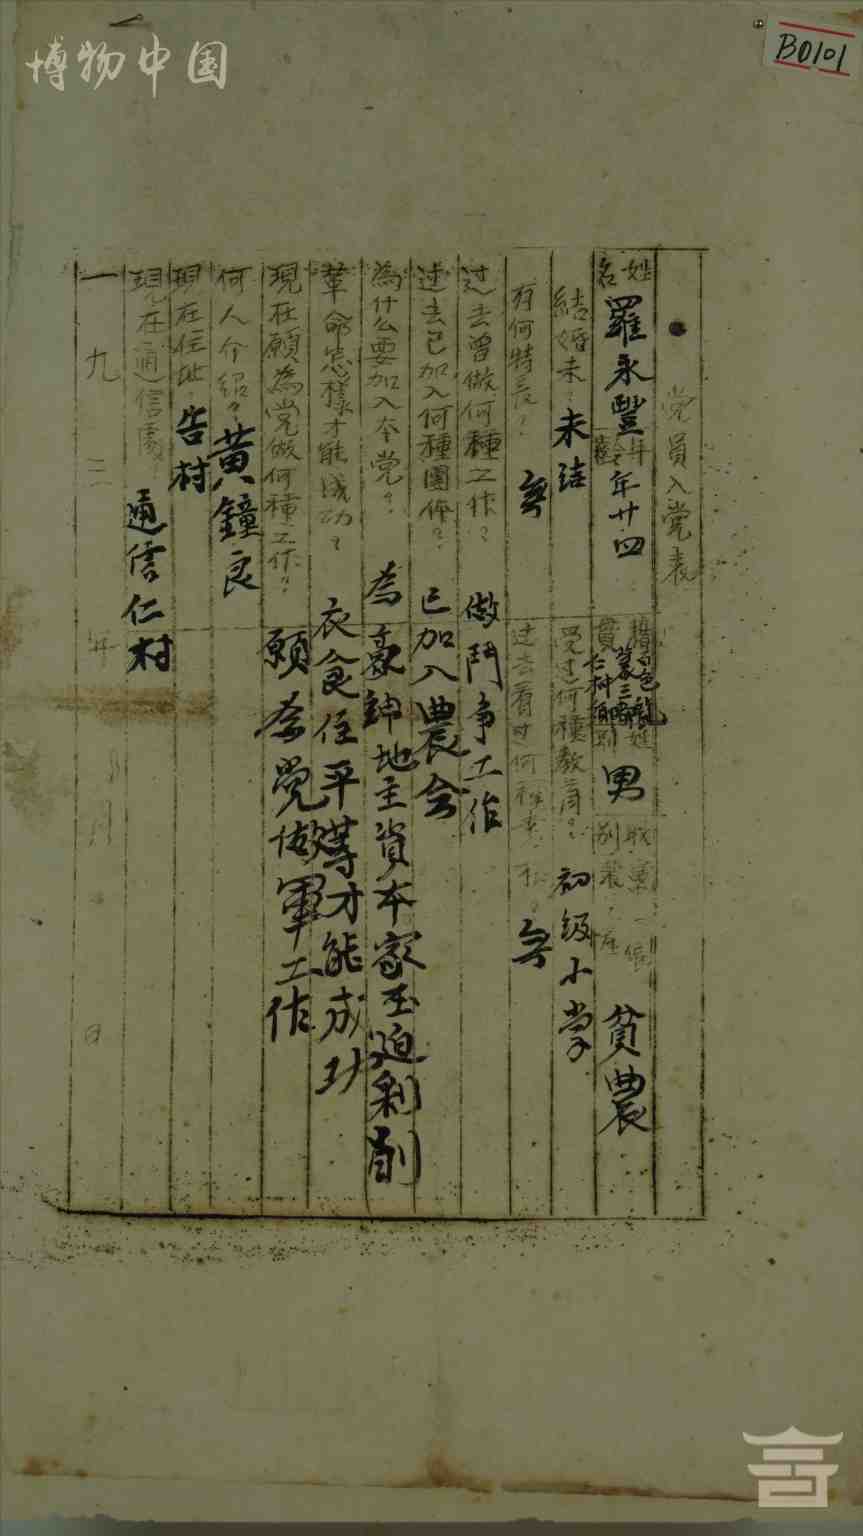 博物中国
B0101
党員入党表
姓名 羅永豐 年齡 年廿四 籍貫 百色 仁村 性別 男 職業 貧農
結婚未？ 未结 受过何種教育？ 初级小学
有何特長？ 無 过去看过何種書 無
过去曾做何種工作？ 做鬥争工作
过去已加入何種團体？ 已加入農会
為什么要加入本党？ 為豪紳地主資本家压迫剥削
革命怎樣才能成功？ 衣食住平等才能成功
現在願為党做何種工作？ 願為党做軍工作
何人介紹？ 黄鐘良
現在住址？ 告村
現在通信處？ 通信仁村
一九三 年 月 日